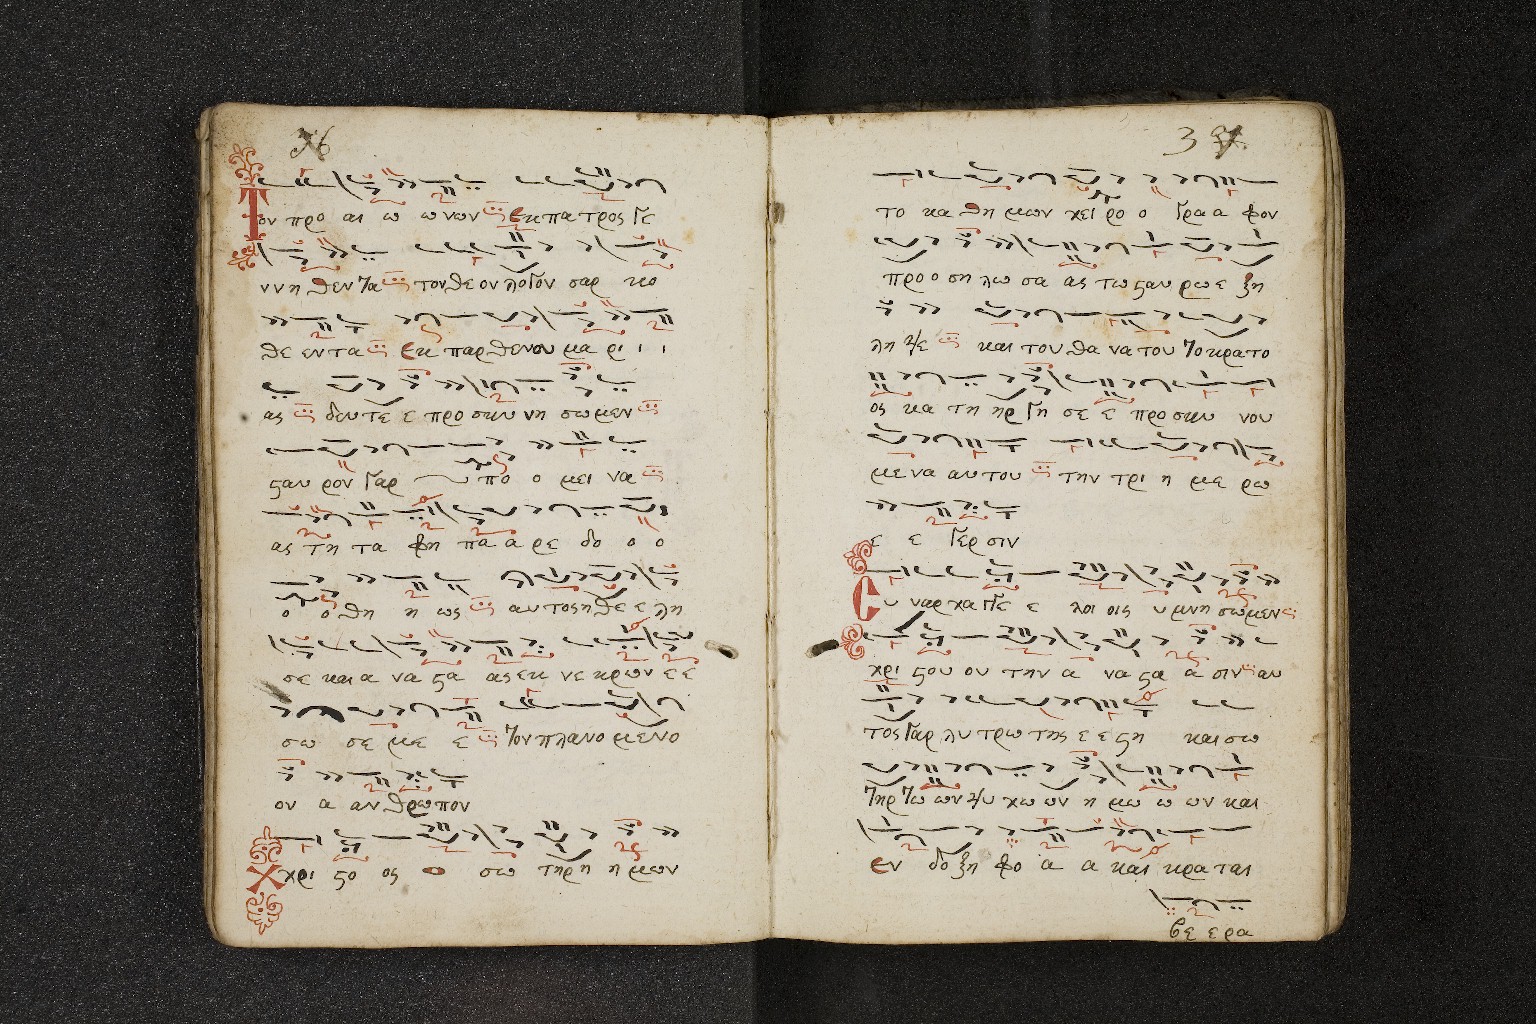 36
Τον προ αι ω ω νων Εκ πα τρος γε
ννη θεν τα τον θε ον λογον σαρ κο
θε εν τα Εκ παρ θενου μα ρι ι ι
ας δευ τε ε προ σκυ νη σω μεν
ϛαυ ρον γαρ πο ο μει να
ας τη τα φη πα α ρε δο ο ο
ο ο θη η ως αυ τος ηθε ε λη
σε και α να ϛα ας εκ νε κρων ε ε
σω σε με ε τον πλανο με νο
ον α αν θρωπον
Χ χρι ϛο ος ο σω τηρ η η μων
37
το κα θη μων χει ρο ο γρα α φον
προ ο ση λω σα ας τω ϛαυ ρω ε ξη
λη ψε και του θα να του το κρα το
ος κα τη ηρ γη σε ε προ σκυ νου
με να αυ του την τρι η με ρω
ε ε γερ σιν
Συ ναρ χα γγε ε λοι οις υ μνη σω μεν
χρι ϛου ου την α να ϛα α σιν αυ
τος γαρ λυ τρω της ε ε ϛη και σω
τηρ τω ων ψυ χω ων η μω ω ων και
εν δο ξη φο α α και κρα ται
βε ε ρα